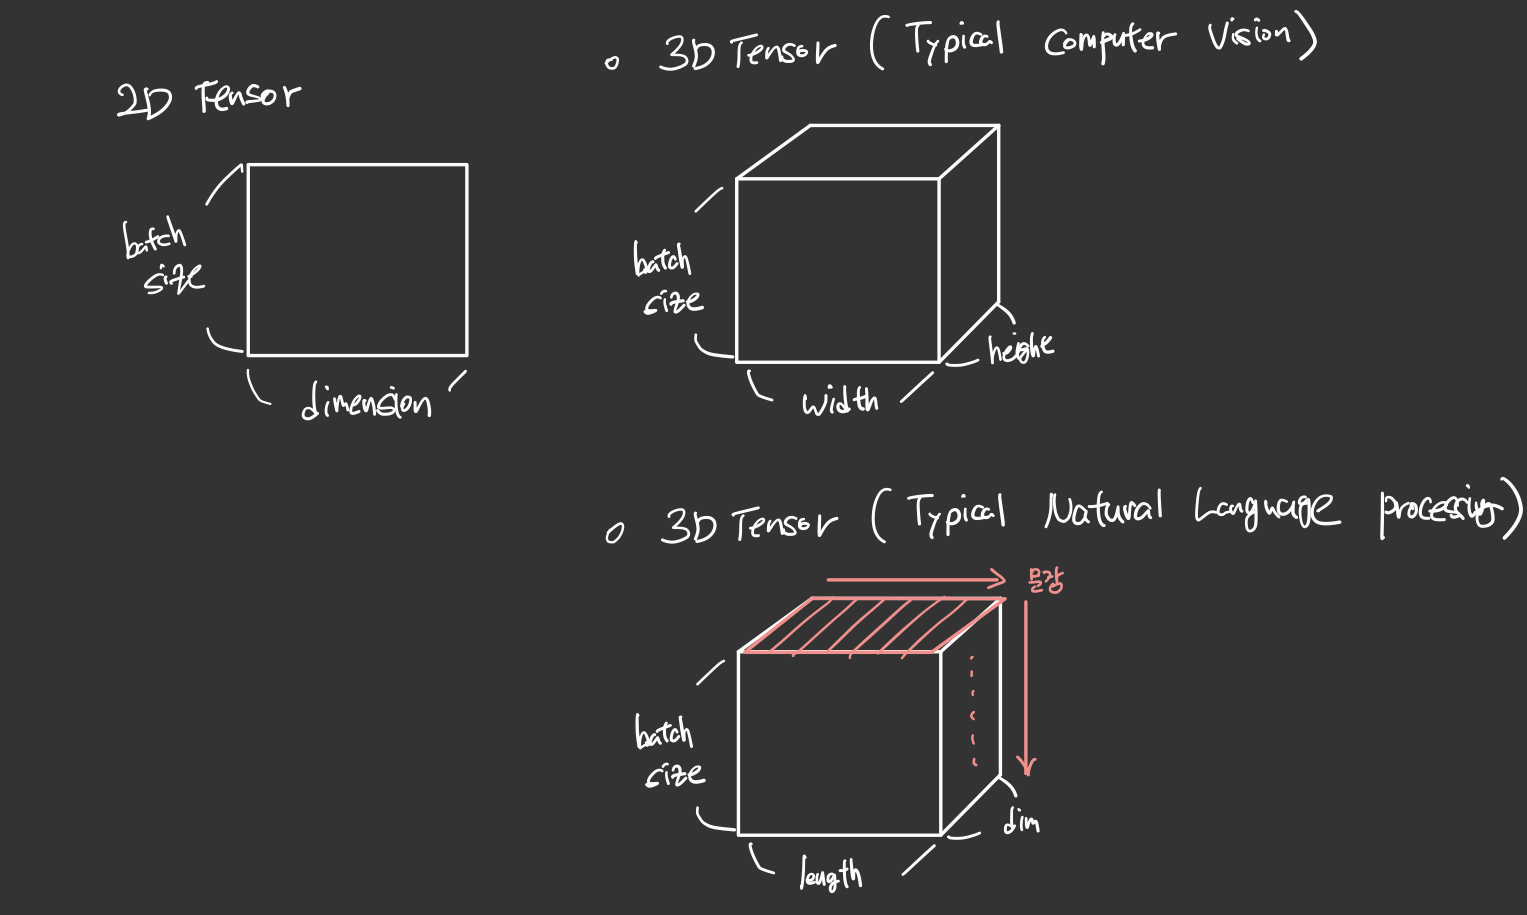 2D Tensor
batch
size
dimension
o 3D Tensor (Typical Computer Vision)
batch
size
width
height
o 3D Tensor (Typical Natural Language processing)
문장
batch
size
length
dim